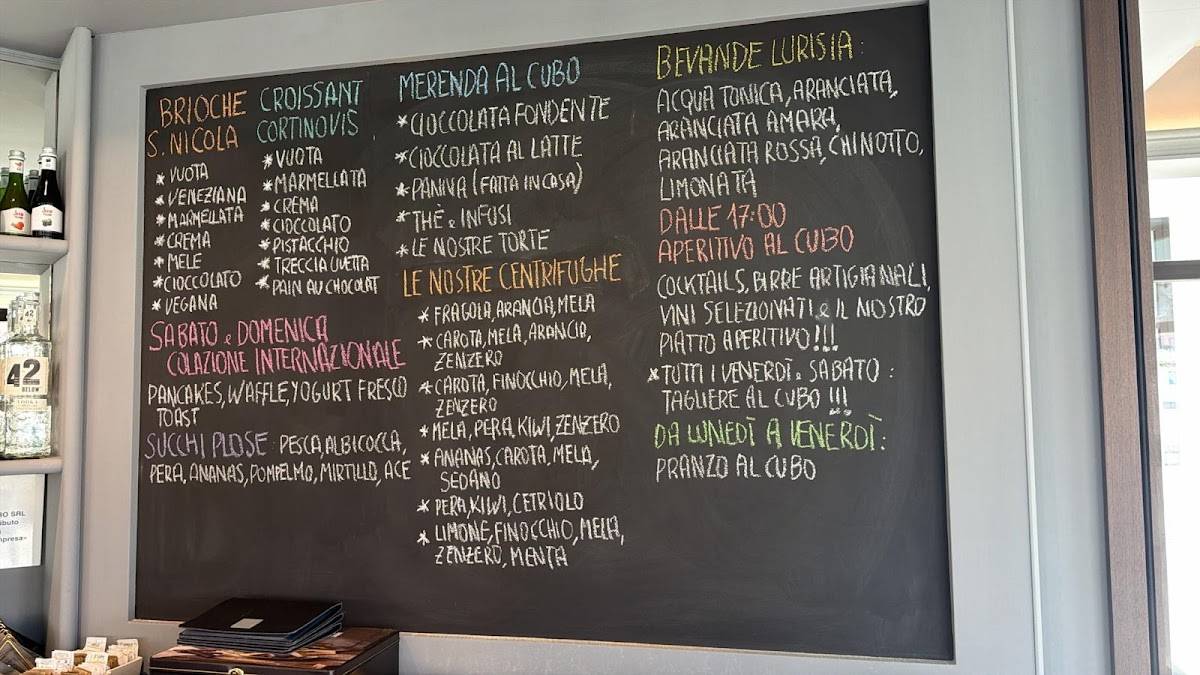 BRIOCHE
S. NICOLA
* VUOTA
* VENEZIANA
* MARMELLATA
* CREMA
* MELE
* CIOCCOLATO
* VEGANA
CROISSANT
CORTINOVIS
* VUOTA
* MARMELLATA
* CREMA
* CIOCCOLATO
* PISTACCHIO
* TRECCIA UVETTA
* PAIN AU CHOCOLAT
SABATO e DOMENICA
COLAZIONE INTERNAZIONALE
PANCAKES, WAFFLE, YOGURT FRESCO
TOAST
SUCCHI PLOSE: PESCA, ALBICOCCA,
PERA, ANANAS, POMPELMO, MIRTILLO, ACE
MERENDA AL CUBO
* CIOCCOLATA FONDENTE
* CIOCCOLATA AL LATTE
* PANNA (FATTA IN CASA)
* THÈ e INFUSI
* LE NOSTRE TORTE
LE NOSTRE CENTRIFUGHE
* FRAGOLA, ARANCIA, MELA
* CAROTA, MELA, ARANCIO,
ZENZERO
* CAROTA, FINOCCHIO, MELA,
ZENZERO
* MELA, PERA, KIWI, ZENZERO
* ANANAS, CAROTA, MELA,
SEDANO
* PERA, KIWI, CETRIOLO
* LIMONE, FINOCCHIO, MELA,
ZENZERO, MENTA
BEVANDE LURISIA:
ACQUA TONICA, ARANCIATA,
ARANCIATA AMARA,
ARANCIATA ROSSA, CHINOTTO,
LIMONATA
DALLE 17:00
APERITIVO AL CUBO
COCKTAILS, BIRRE ARTIGIANALI,
VINI SELEZIONATI e IL NOSTRO
PIATTO APERITIVO!!!
* TUTTI I VENERDÌ e SABATO:
TAGLIERE AL CUBO!!!
DA LUNEDÌ A VENERDÌ:
PRANZO AL CUBO
42
BELOW
SRL